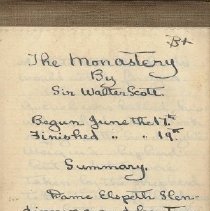 B+
The Monastery
By
Sir Walter Scott.
Begun June the 17th
Finished " " 19th
Summary.
Dame Elspeth Glen-